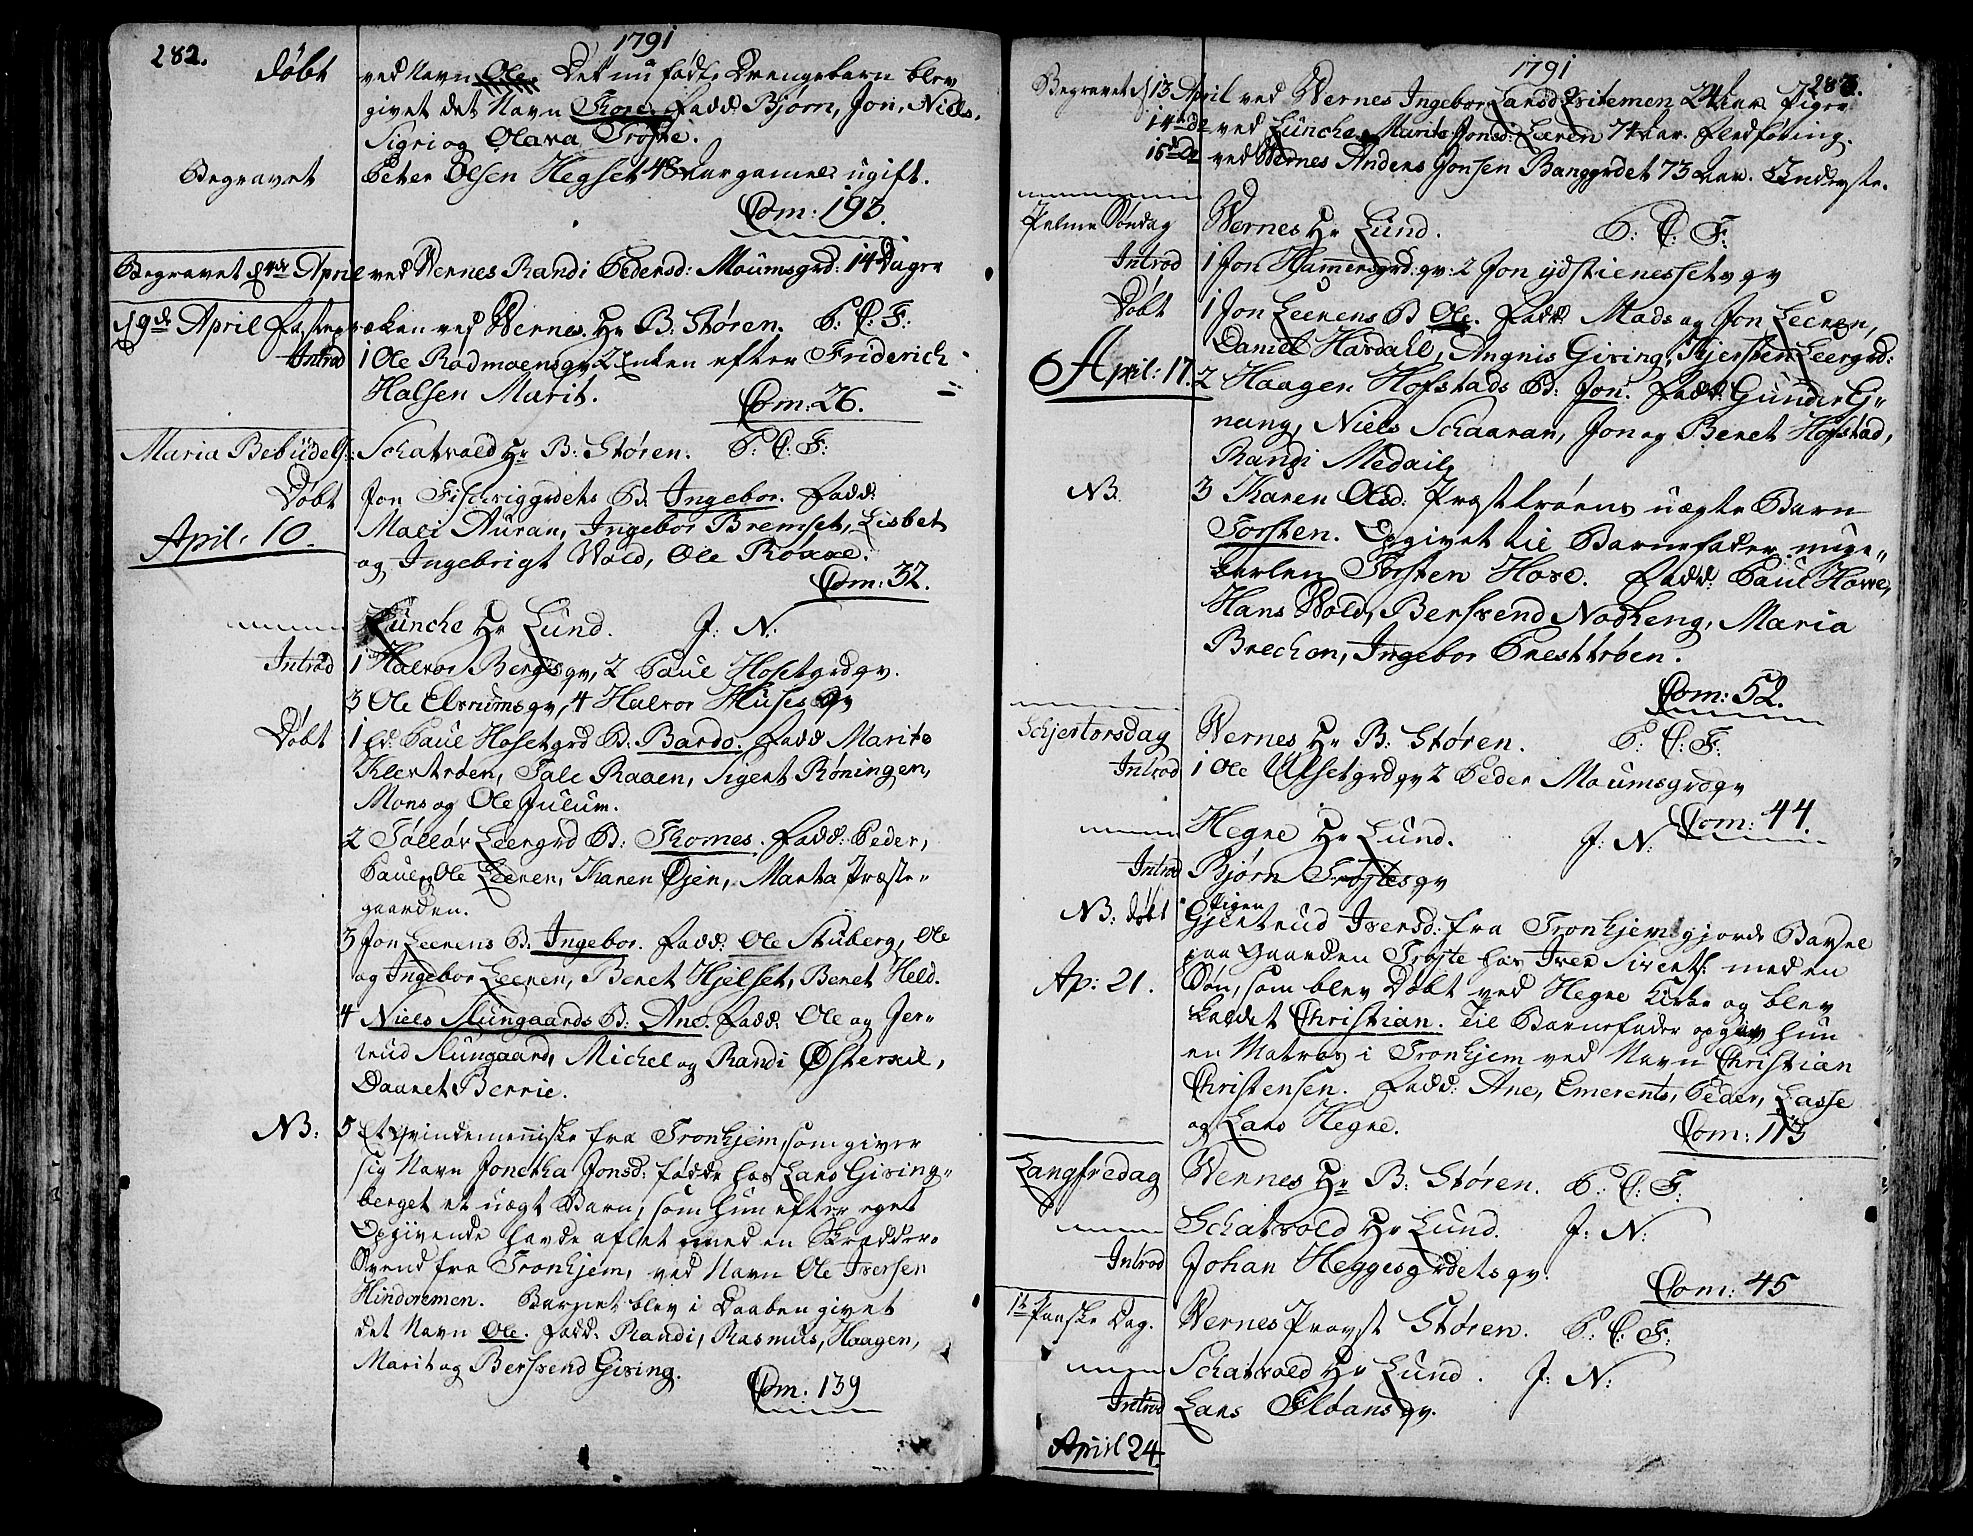 282.
1791
Døbt ved Navn Ole. Det nu fødte Drengebarn blev
givet det Navn Tore. Fadd: Bjørn, Jon, Niels,
Sigri og Olava Trøjte.
Begravet Peter Olsen Hegset 48 aar gamel ugift.
Com: 193.
Begravet d 4de April ved Wernes Randi Pedersd: Moumsgrd: 14 Dager
d 9de April Fastepræken ved Wernes. Hr B: Støren. P: C: F:
Introd 1 Ole Rodmoens qv 2 Enken efter Friderich
Halsen Marit.
Com: 26.
Maria Bebudels: Schatvold Hr B: Støren. P: C: F:
Døbt Jon Fischviggrdets B. Ingebor. Fadd:
April. 10. Mali Auran, Ingebor Bremset, Lisbet
og Ingebrigt Wold, Ole Roxxe.
Com: 32.
Lünche Hr Lund. J: N:
Introd 1 Halvor Bergs qv, 2 Paul Hosetgrd qv.
3 Ole Elvrums qv, 4 Halvor Muses qv
Døbt 1 Paul Hosetgrd B: Bardo. Fadd Marite
Klevtrøen, Tale Raaen, Sigert Røningen,
Mons og Ole Julum.
2 Tølløv Leergrd B: Thomes. Fadd: Peder,
Paul, Ole Leeren, Karen Øjen, Marta Præste-
gaarden.
3 Jon Leerens B: Ingebor. Fadd: Ole Stuberg, Ole
og Ingebor Leeren, Beret Hjelset, Beret Held.
4 Niels Slungaards B: Ane. Fadd. Ole og Jer-
trud Slungaard, Michel og Randi Østerxil,
Daaret Berrie.
NB: 5 Et Qvindemenniske fra Tronhjem, som giver
sig Navn Jonetha Jonsd: fødde hos Lars Gising-
berget et uægt Barn, som hun efter eget
Opgivende havde aflet med en Skrædder-
Svend fra Tronhjem, ved Navn Ole Iversen
Hindremen. Barnet blev i Daaben givet
det Navn Ole. Fadd. Randi, Rasmus, Haagen,
Marit og Bersvend Gising.
Com. 139
1791
283.
Begravet d 13 April ved Wernes Ingebor Larsd Fritemen 24 aar Pige
14de ved Lünche Marite Jonsd: Leeren 74 aar. Fledføring.
15de ved Wernes Anders Jonsen Banggrdet 73 aar. Inderste.
Palme Søndag Wernes Hr Lund. P: C: F:
Introd 1 Jon Hammersgrd: qv: 2 Jon Ydstienessets qv
Døbt 1 Jon Leerens B Ole. Fadd: Mads og Jon Leeren,
Daniel Hardall, Angnis Gising, Kjersten Leergrd:
April: 17. 2 Haagen Hofstads B: Jon. Fadd: Gunder G-
nang, Niels Schaaran, Jon og Beret Hofstad,
Randi Medaile
NB. 3 Karen Olsd. Præsttrøens uægte Barn
Torsten. Opgivet til Barnefader unge-
karlen Torsten Hove. Fadd: Paul Hovve,
Hans Wold, Bersvend Nodheng, Maria
Brechen, Ingebor Presttrøen.
Com: 52.
Schjertorsdag Wernes Hr B: Støren. P: C: F:
Introd 1 Ole Uhsetgrd qv 2 Peder Moumsgrd qv
Com: 44.
Hegne Hr Lund. J: N:
Introd Bjørn Trøjtes qv
NB: døbt Pigen
Gjertrud Iversd: fra Tronhjem gjorde Barsel
paa Gaarden Trøjte hos Iver Sivertf: med en
Ap: 21. Søn, som blev Døbt ved Hegne Kirke og blev
kaldet Christian. Til Barnefader opgav hun
en Matros i Tronhjem ved Navn Christian
Christensen. Fadd: Ane, Emerents, Peder, Lasse
og Lars Hegne.
Com: 113
Langfredag Wernes Hr B: Støren. P: C: F:
Schatvold Hr Lund. J: N:
Introd Johan Heggesgrdets qv.
Com: 45
1te Paaske Dag. Wernes Provst Støren. P: C: F:
Schatvold Hr Lund. J: N:
Introd Lars Fløans qv.
April 24.